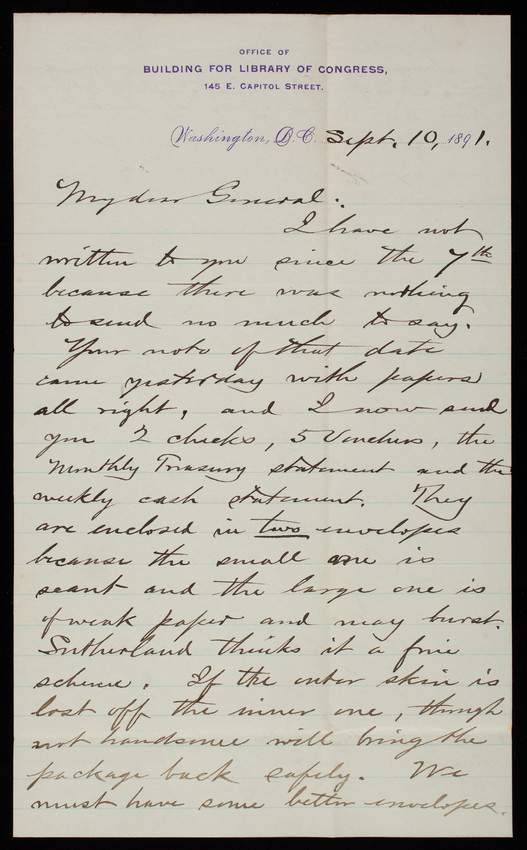 OFFICE OF
BUILDING FOR LIBRARY OF CONGRESS,
145 E. CAPITOL STREET.
Washington, D.C. Sept. 10, 1891.
My dear General:
I have not
written to you since the 7th
because there was nothing
to send no much to say.
Your note of that date
came yesterday with papers
all right, and I now send
you 2 checks, 5 Vouchers, the
Monthly Treasury statement and the
weekly cash statement. They
are enclosed in two envelopes
because the small one is
scant and the large one is
of weak paper and may burst.
Sutherland thinks it a fine
scheme. If the outer skin is
lost off the inner one, though
not handsome will bring the
package back safely. We
must have some better envelopes.